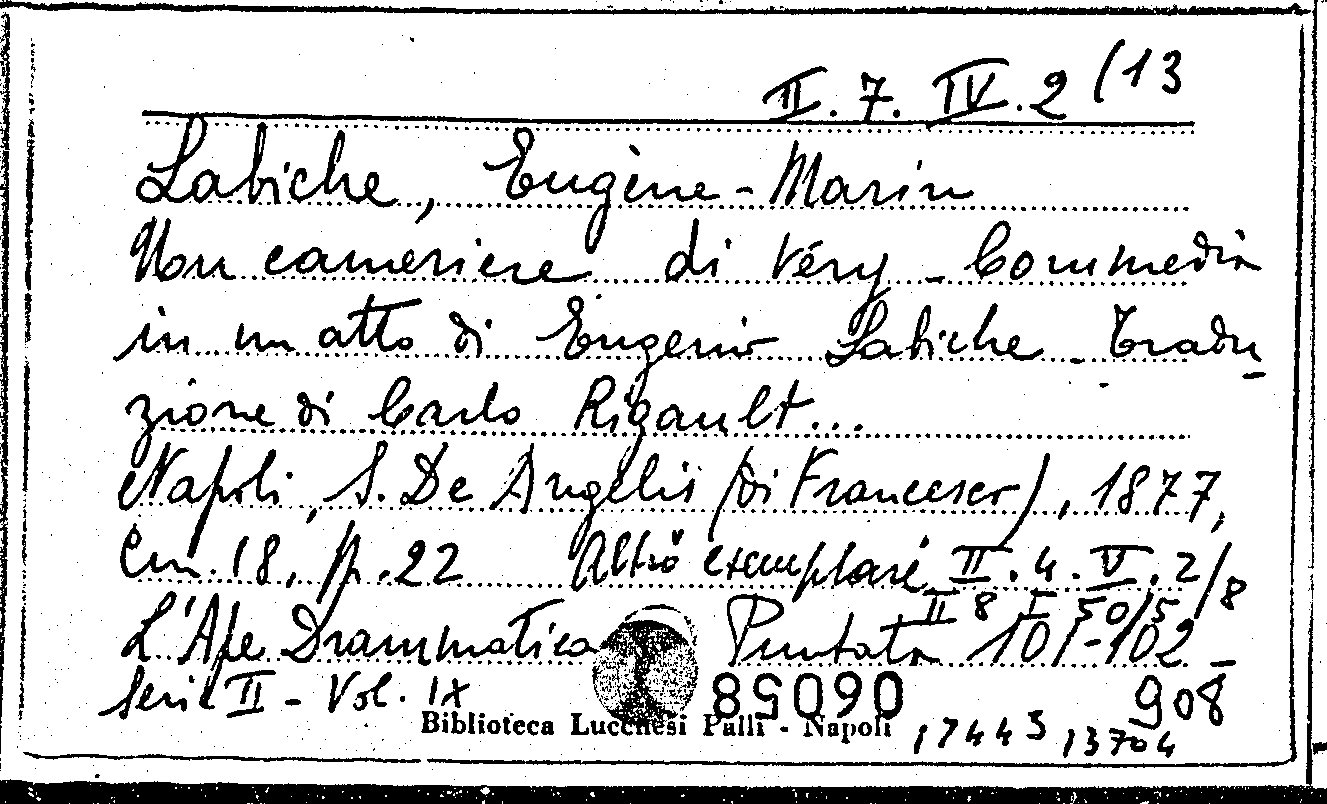 II. 7. IV. 2 (13
Labiche, Eugène-Marin
Un cameriere di Véry - Commedia
in un atto di Eugenio Labiche - Tradu_
zione di Carlo Rigault...
Napoli, S. De Angelis (di Francesco), 1877,
Cm. 18, p. 22 Altro esemplare II. 4. V. 2/8
II 8 I 50/5
L'Ape Drammatica Puntata 101-102 -
Serie II - Vol. IX 06058 908
Biblioteca Lucchesi Palli - Napoli 17443 13704